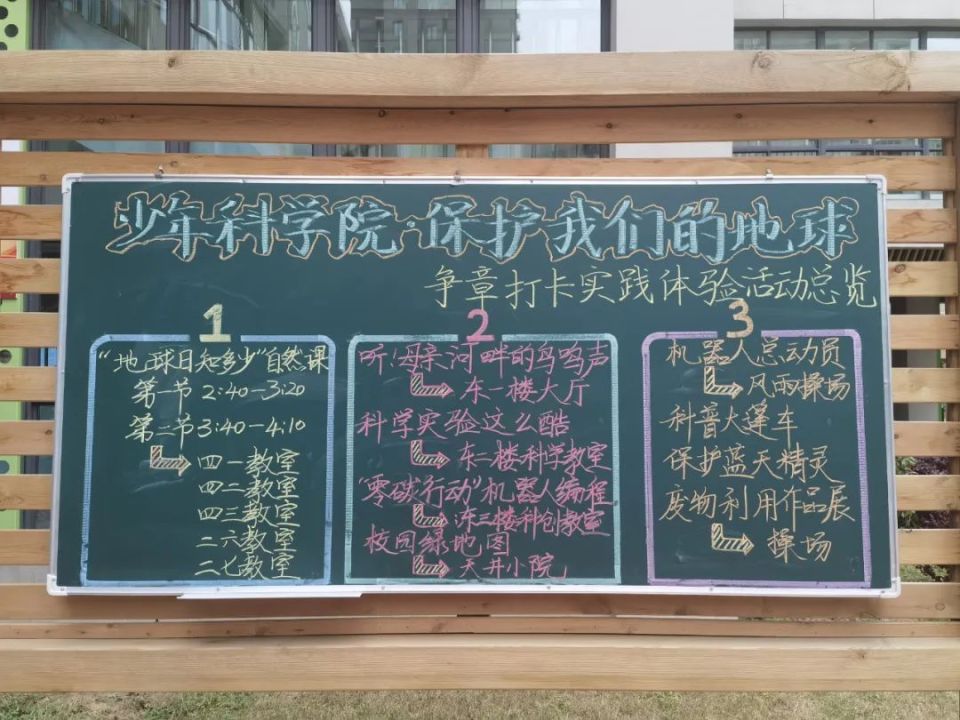 少年科学院·保护我们的地球
争章打卡实践体验活动总览
1
“地球日知多少”自然课
第一节 2:40—3:20
第二节 3:40—4:10
四一教室
四二教室
四三教室
二六教室
二七教室
2
听!母亲河畔的鸟鸣声
东一楼大厅
科学实验这么酷
东二楼科学教室
“零碳行动”机器人编程
东三楼科创教室
校园绿地图
天井小院
3
机器人总动员
风雨操场
科普大篷车
保护蓝天精灵
废物利用作品展
操场